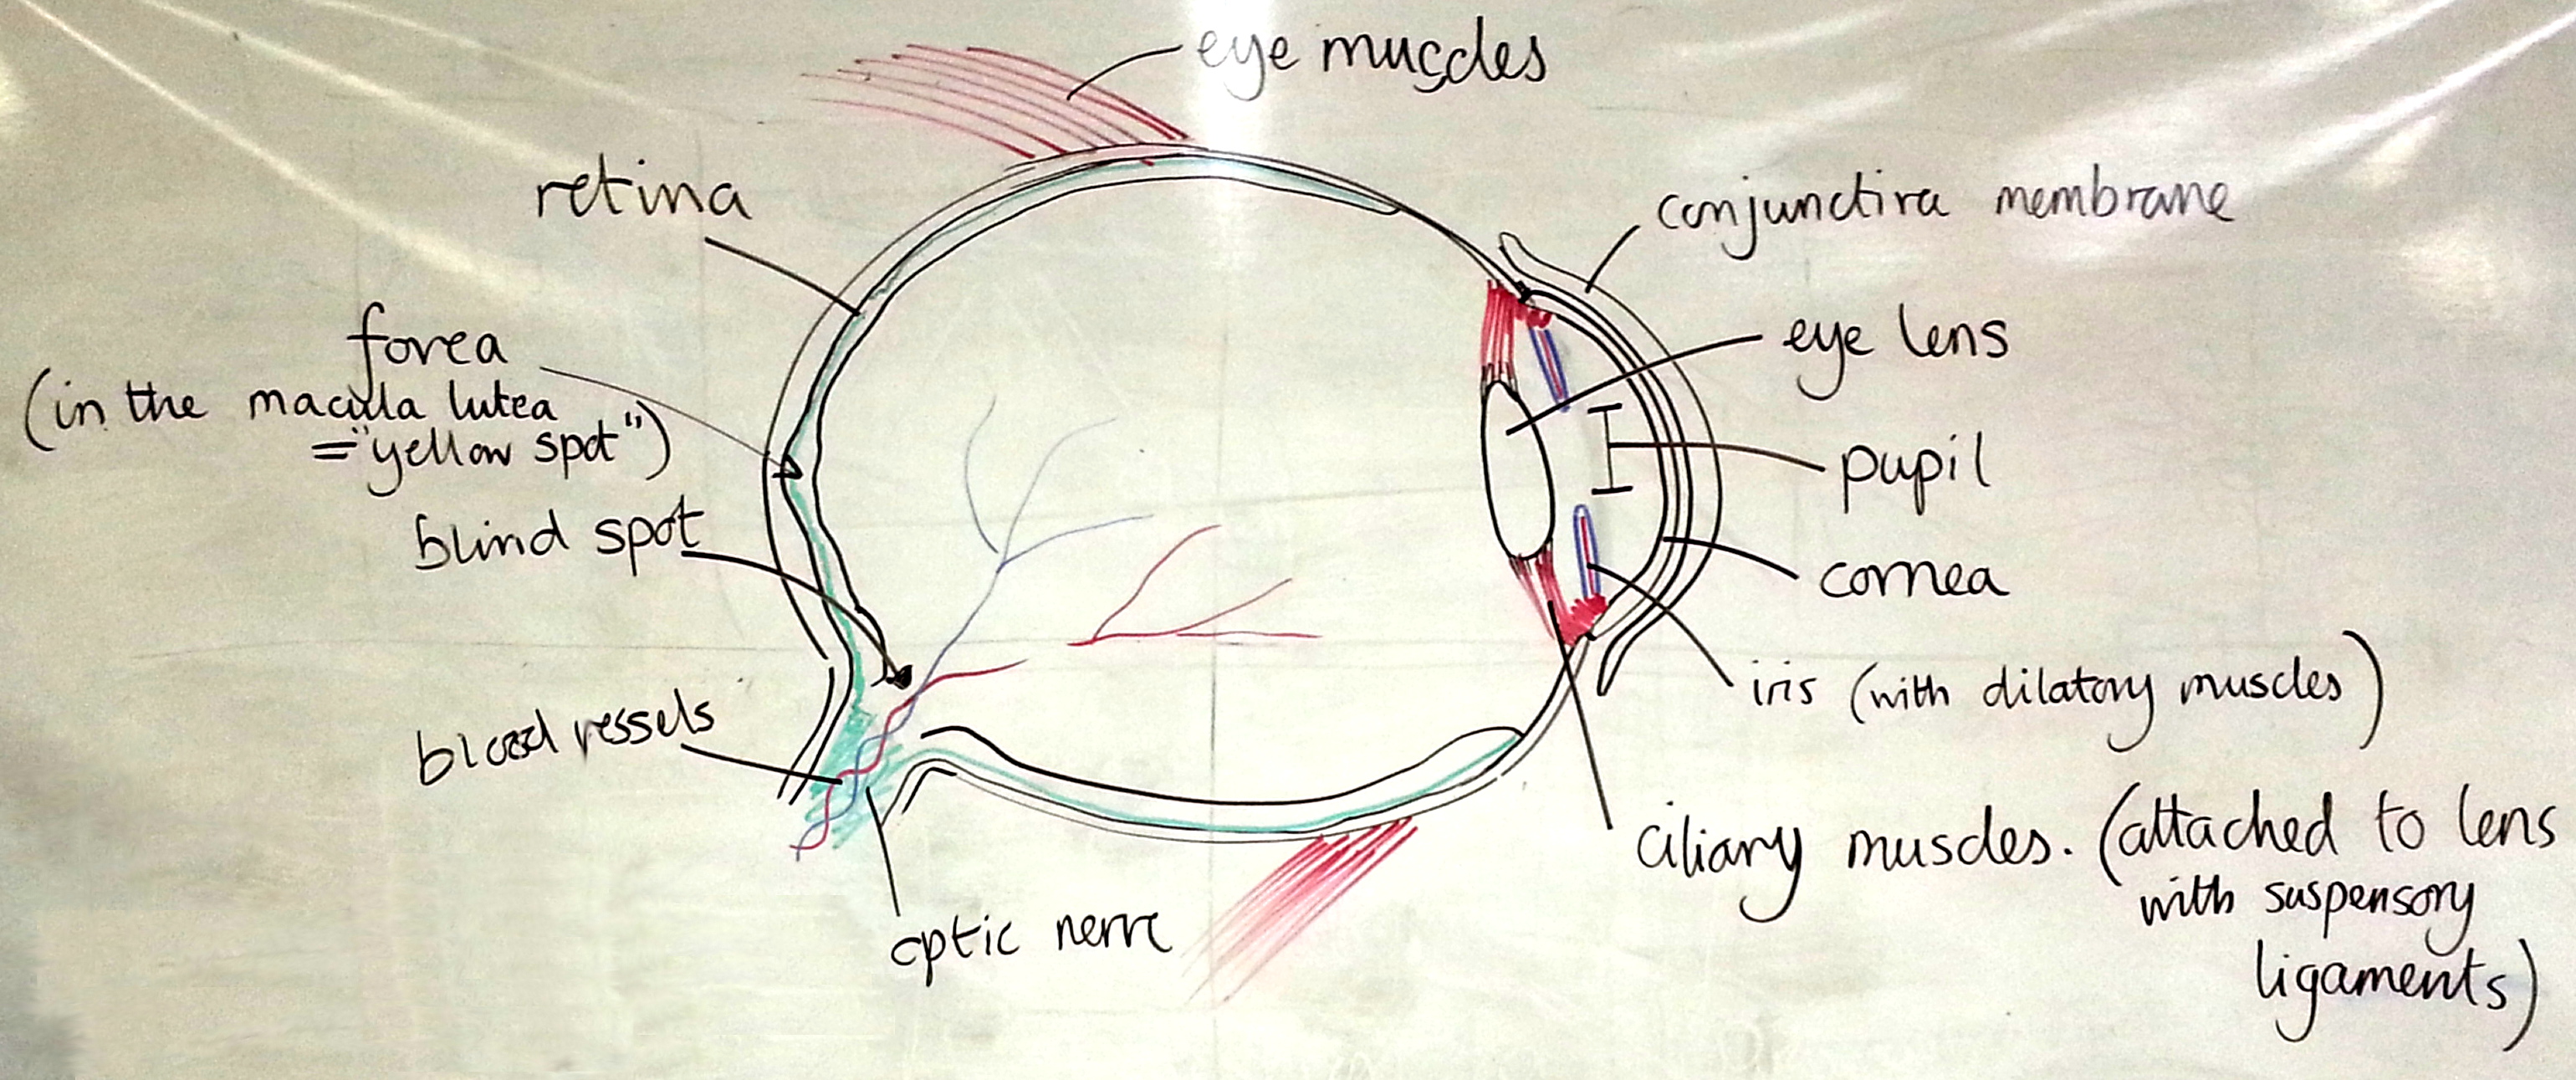 eye muscles
retina
conjunctiva membrane
fovea
(in the macula lutea
="yellow spot")
eye lens
pupil
blind spot
cornea
iris (with dilatory muscles)
blood vessels
ciliary muscles. (attached to lens
with suspensory
ligaments)
optic nerve